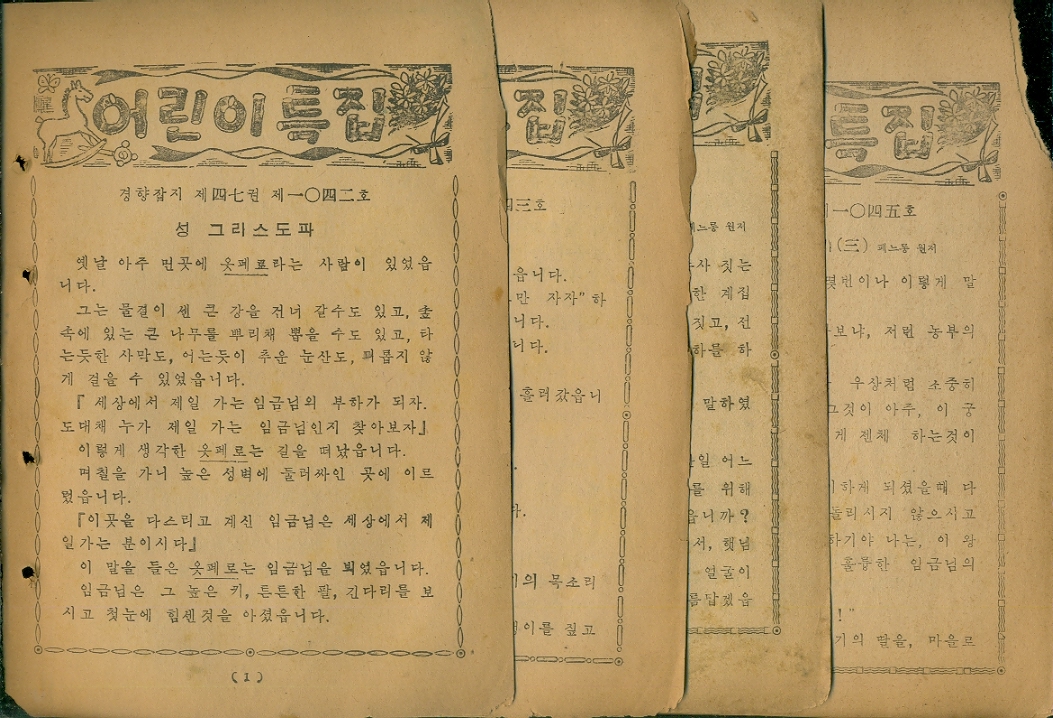 어린이특집
경향잡지 제四七권 제一〇四二호
성 그리스도파
옛날 아주 먼곳에 옷페로라는 사람이 있었읍
니다.
그는 물결이 센 큰 강을 건너 갈수도 있고, 숲
속에 있는 큰 나무를 뿌리채 뽑을 수도 있고, 타
는듯한 사막도, 어는듯이 추운 눈산도, 괴롭지 않
게 걸을 수 있었읍니다.
『세상에서 제일 가는 임금님의 부하가 되자.
도대채 누가 제일 가는 임금님인지 찾아보자』
이렇게 생각한 옷페로는 길을 떠났읍니다.
며칠을 가니 높은 성벽에 둘러싸인 곳에 이르
렀읍니다.
『이곳을 다스리고 계신 임금님은 세상에서 제
일가는 분이시다』
이 말을 들은 옷페로는 임금님을 뵈였읍니다.
임금님은 그 높은 키, 튼튼한 팔, 긴다리를 보
시고 첫눈에 힘센것을 아셨읍니다.
(1)
집
三호
읍니다.
만 자자"하
니다.
니다.
흘러갔읍니
의 목소리
이를 짚고
페느롱 원저
사 짓는
한 계집
짓고, 전
하를 하
말하였
일 어느
를 위해
읍니까?
서, 햇님
얼굴이
름답겠읍
특집
一〇四五호
(三) 페느롱 원저
몇번이나 이렇게 말
보냐, 저런 농부의
우상처럼 소중히
그것이 아주, 이 궁
게 전체 하는것이
하게 되셨을때 다
돌리시지 않으시고
하기야 나는, 이 왕
훌륭한 임금님의
!"
기의 딸을, 마을르